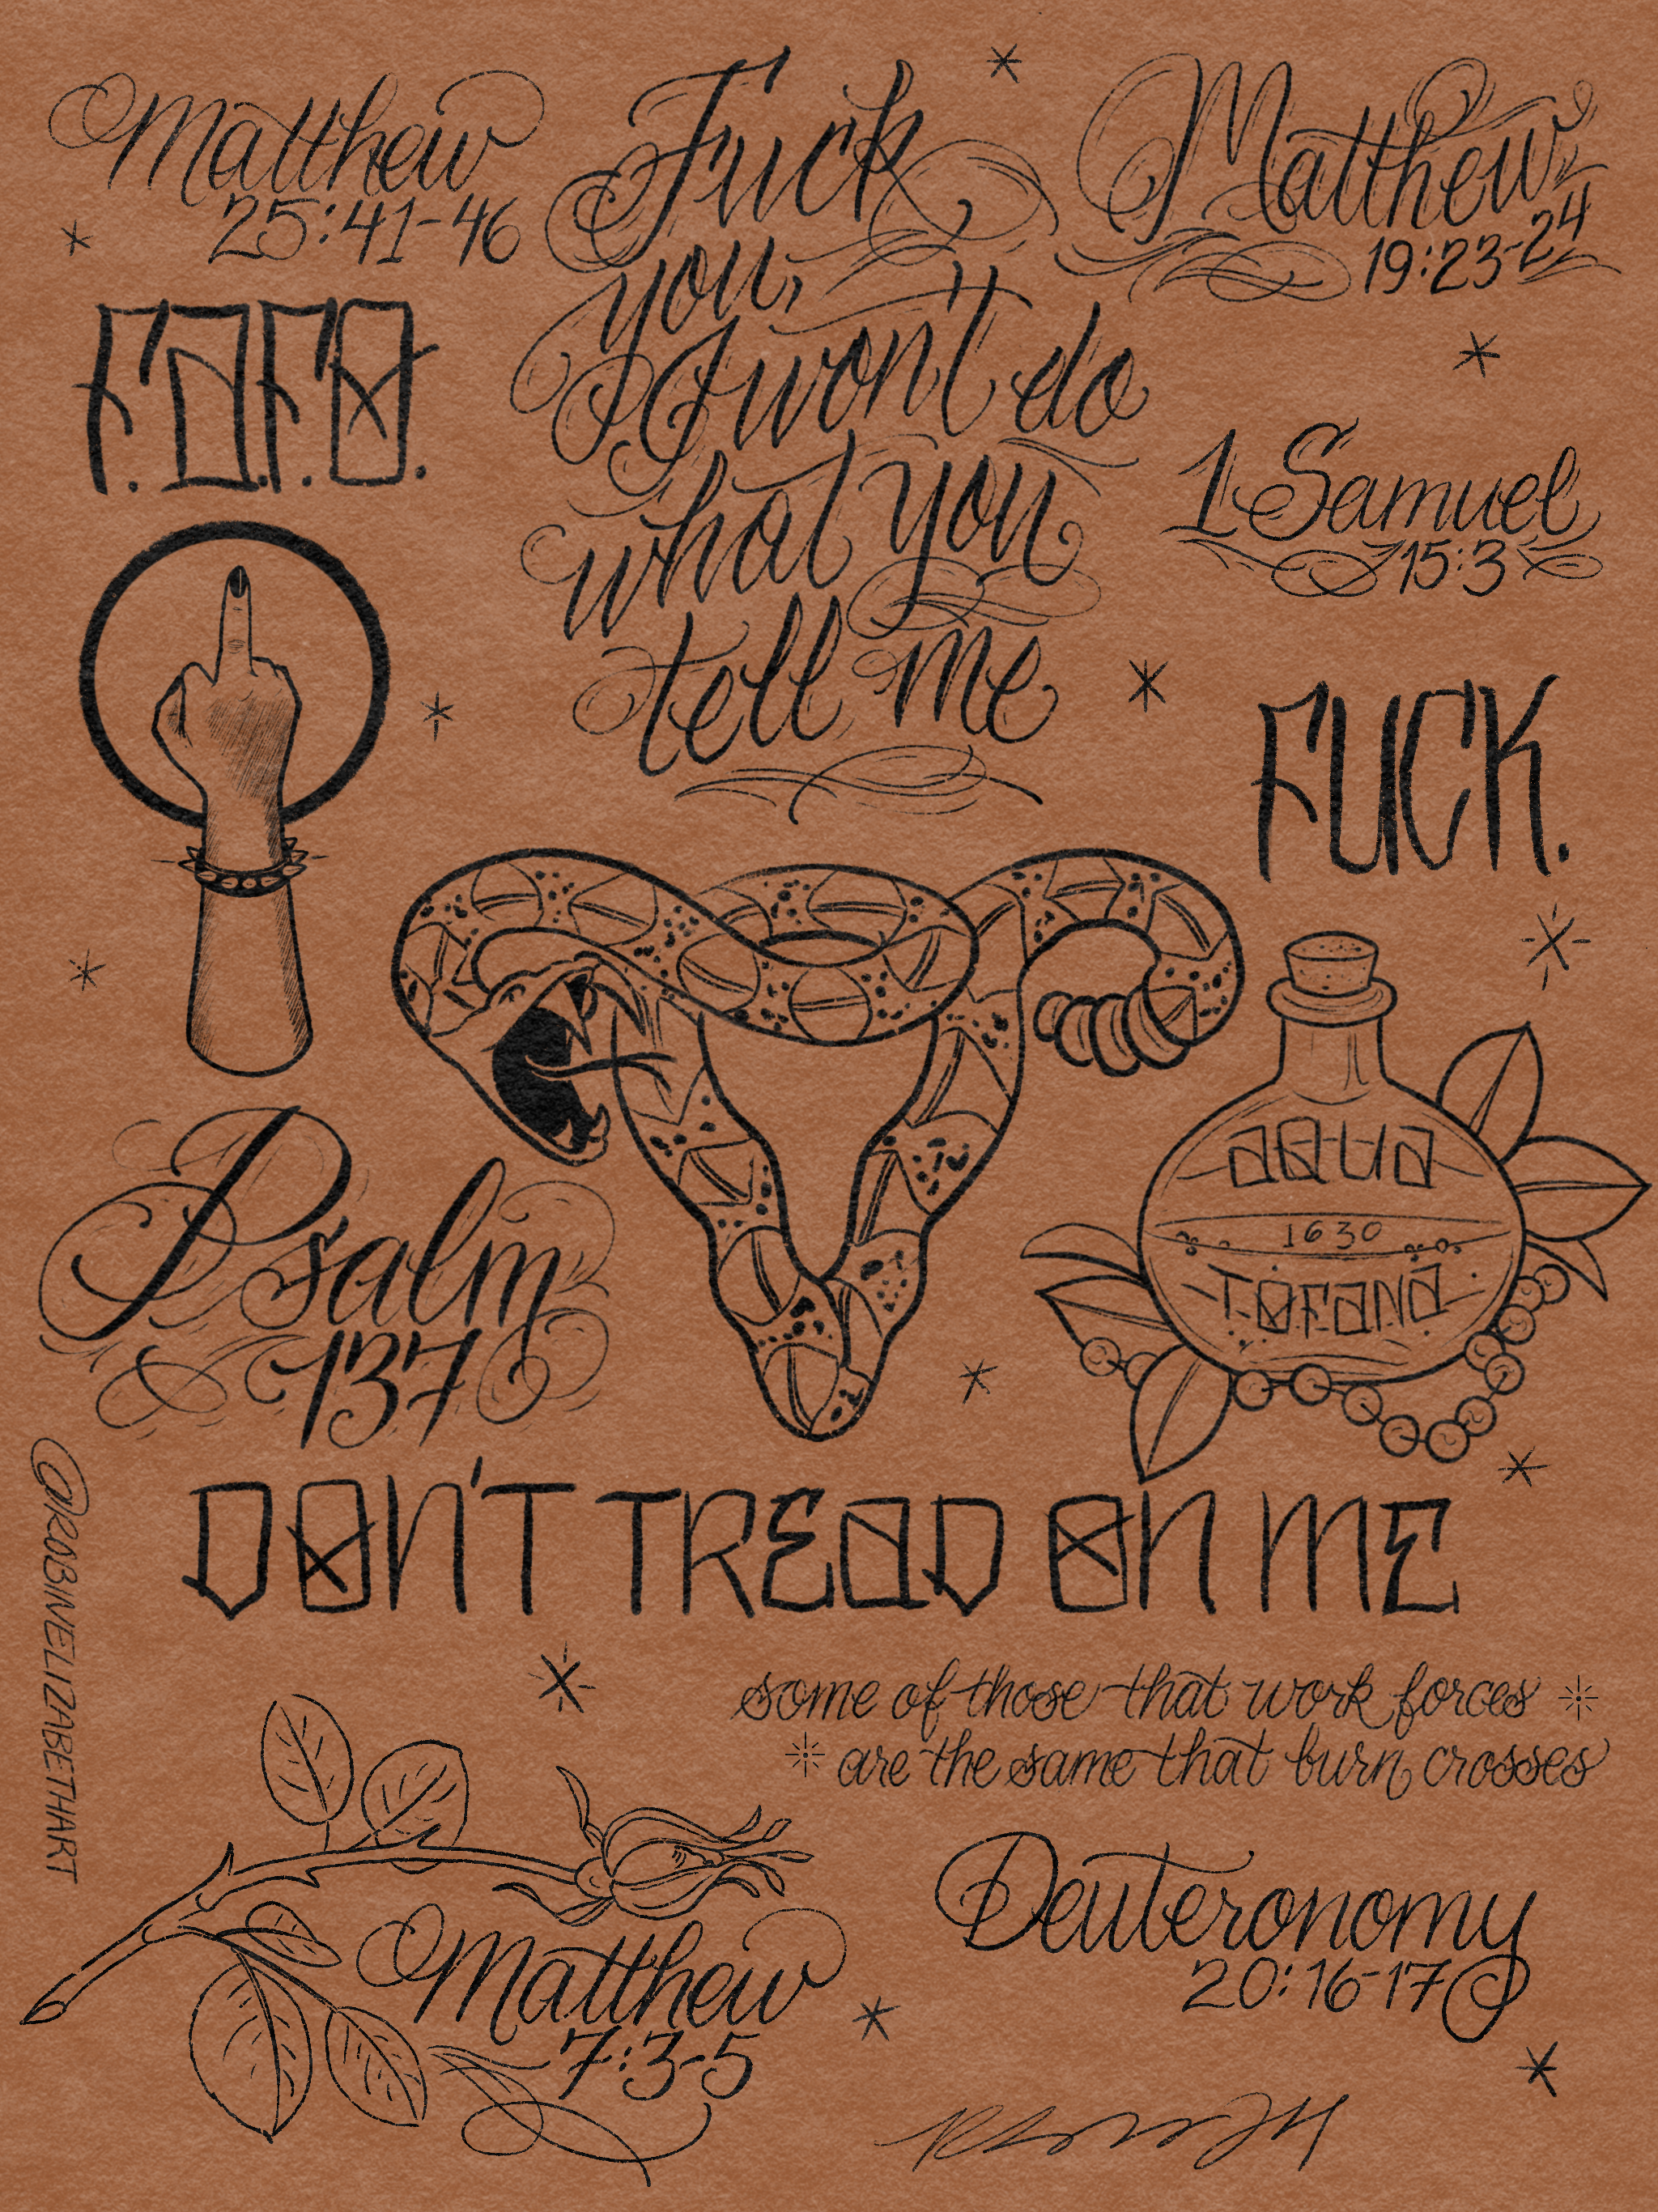 Matthew
25:41-46
Fuck
you,
I won't do
what you
tell me
Matthew
19:23-24
F.A.F.O.
1 Samuel
15:3
FUCK.
AQUA
1630
TOFANA
Psalm
137
DON'T TREAD ON ME
@ROBINELIZABETHART
some of those that work forces
are the same that burn crosses
Matthew
7:3-5
Deuteronomy
20:16-17